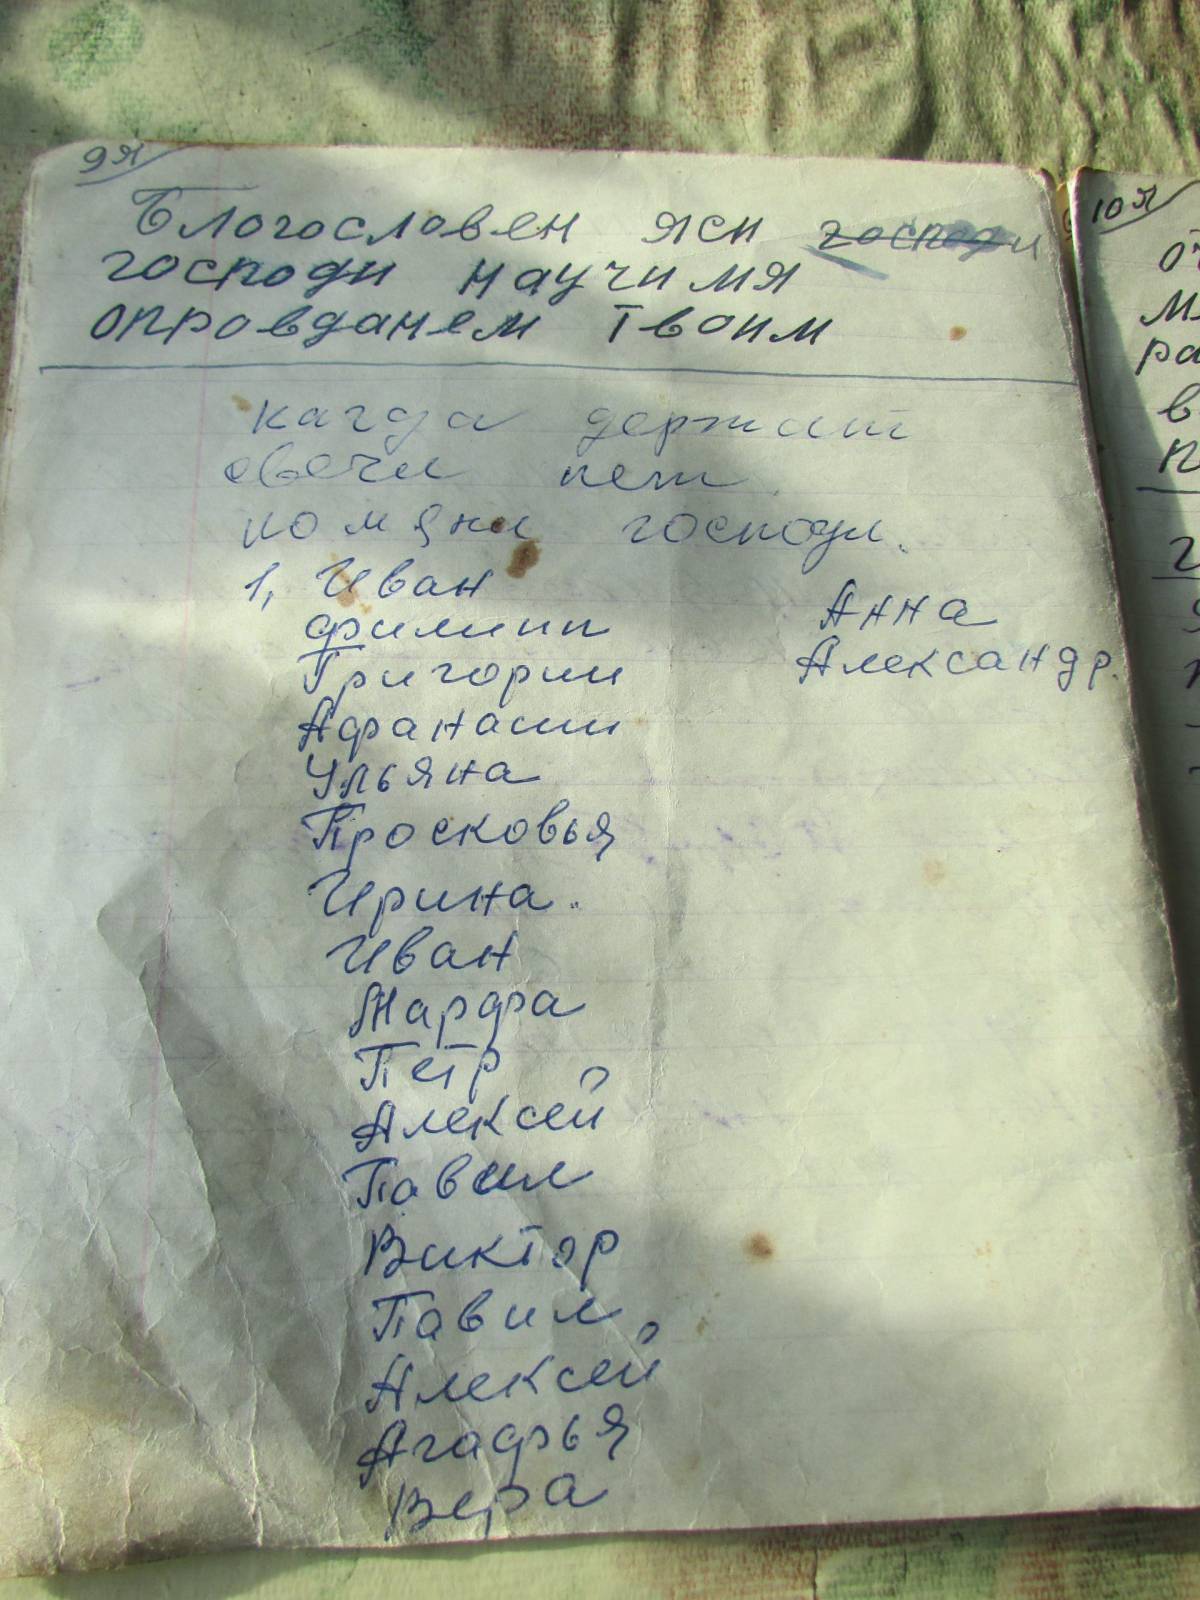 9я
Благословен ясн господи
господи научимя
опровданем твоим
кагда держат
свечи пет
помяни господи.
1, Иван
филипп
Григории
Афанасии
Ульяна
Просковья
Ирина.
Иван
Марфа
Петр
Алексей
Павил
Виктор
Павил
Алексей
Агафья
Вера
Анна
Александр.
10я